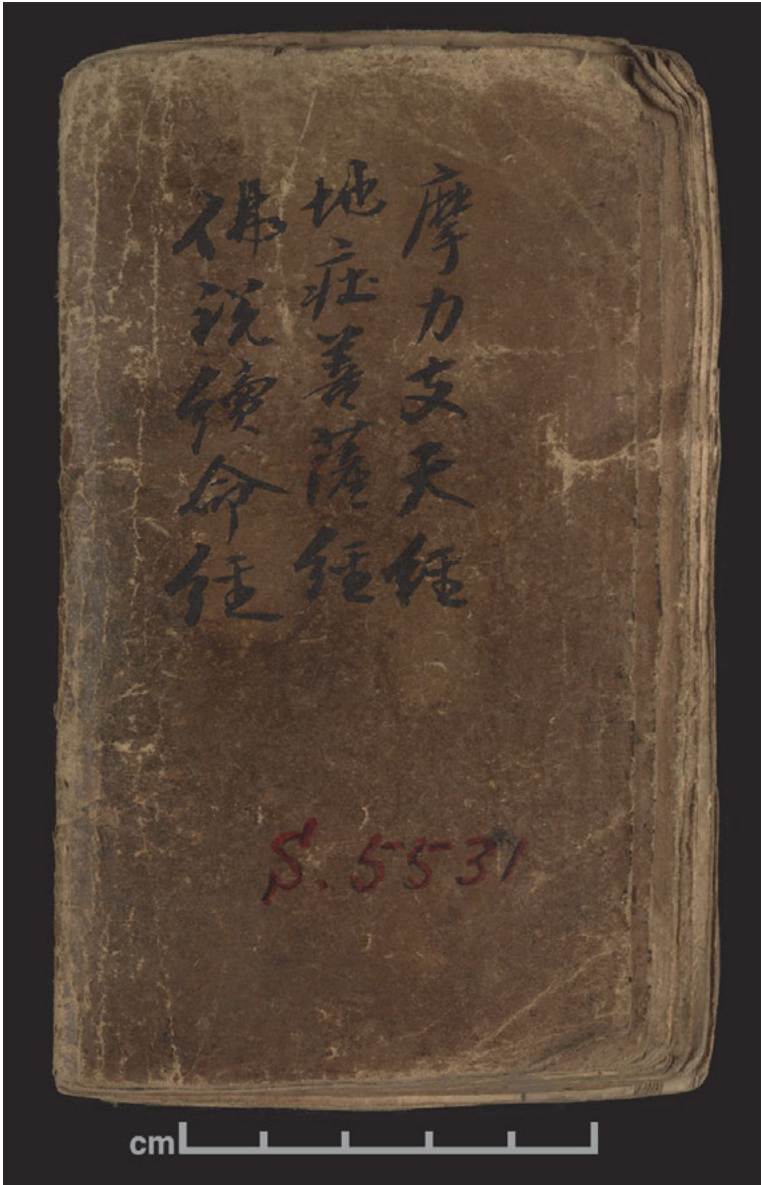 摩力支天經
地藏菩薩經
佛説續命經
S.5531
cm